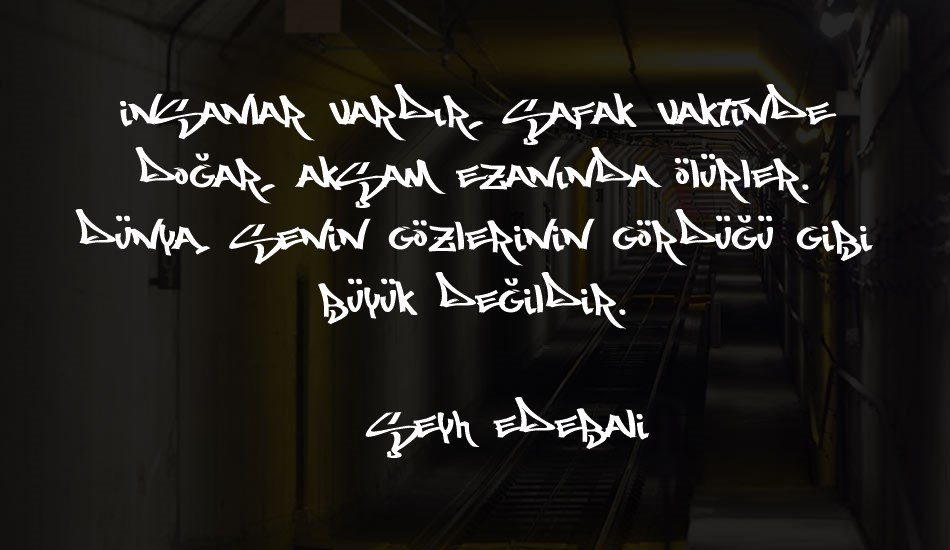 iNSANlAR VARDIR, ŞAFAK VAKTİNDE
DOĞAR, AKŞAM EZANINDA ÖlÜRlER.
DÜNYA, SENİN GÖZlERİNİN GÖRDÜĞÜ GİBİ
BÜYÜK DEĞİlDİR.
ŞEYh EDEBAli